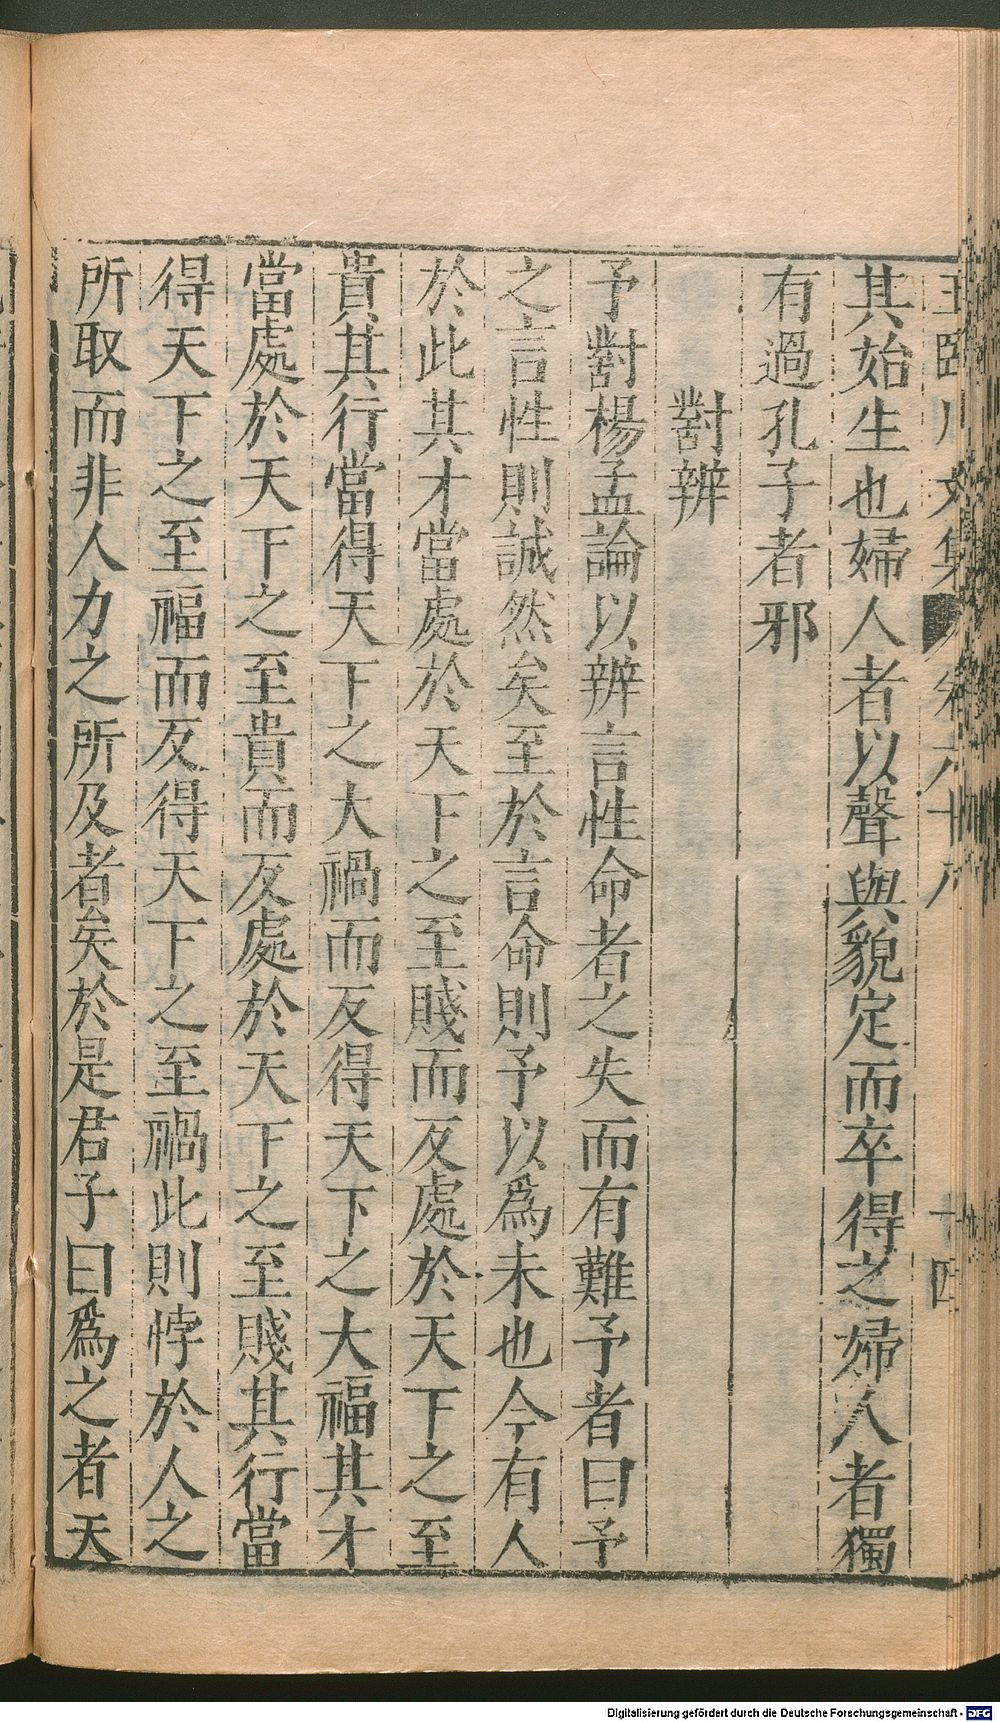 王臨川文集 卷六十八 十四
其始生也婦人者以聲與貌定而卒得之婦人者獨
有過孔子者邪
對辨
予對楊孟論以辨言性命者之失而有難予者曰予
之言性則誠然矣至於言命則予以爲未也今有人
於此其才當處於天下之至賤而反處於天下之至
貴其行當得天下之大禍而反得天下之大福其才
當處於天下之至貴而反處於天下之至賤其行當
得天下之至福而反得天下之至禍此則悖於人之
所取而非人力之所及者矣於是君子曰爲之者天
Digitalisierung gefördert durch die Deutsche Forschungsgemeinschaft - DFG